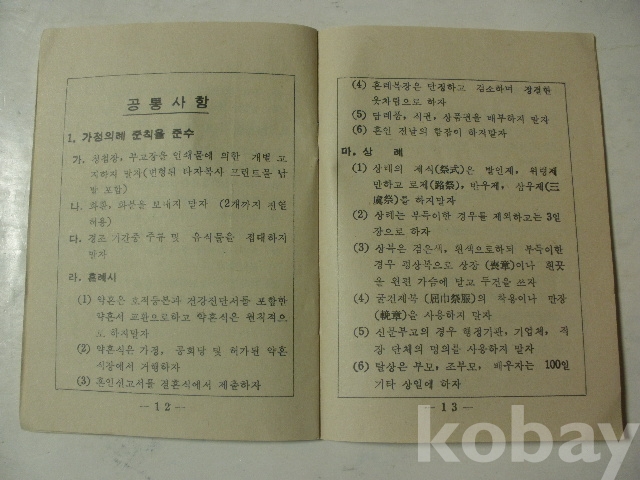 공 통 사 항
1. 가정의례 준칙을 준수
가. 청첩장, 부고장을 인쇄물에 의한 개별 고
지하지 맞자(변형된 타자복사 프린트물 남
발 포함)
나. 화환, 화분을 보내지 말자 (2개까지 진열
허용)
다. 경조 기간중 주류 및 음식물을 접대하지
말자
라. 혼례시
(1) 약혼은 호적등본과 건강진단서를 포함한
약혼서 교환으로하고 약혼식은 원칙적으
로 하지말자
(2) 약혼식은 가정, 공회당 및 허가된 약혼
식장에서 거행하자
(3) 혼인신고서를 결혼식에서 제출하자
— 12 —
(4) 혼례복장은 단정하고 검소하며 정결한
옷차림으로 하자
(5) 답례품, 식권, 상품권을 배부하지 말자
(6) 혼인 전날의 함잡이 하지말자
마. 상 례
(1) 상례의 제식(祭式)은 발인제, 위령제
만하고 로제(路祭), 반우제, 삼우제(三
虞祭)를 하지말자
(2) 상례는 부득이한 경우를 제외하고는 3일
장으로 하자
(3) 상복은 검은색, 흰색으로하되 부득이한
경우 평상복으로 상장 (喪章)이나 흰꽃
을 왼편 가슴에 달고 두건을 쓰자
(4) 굴건제복 (屈巾祭服)의 착용이나 만장
(輓章)을 사용하지 말자
(5) 신문부고의 경우 행정기관, 기업체, 직
장 단체의 명의를 사용하지 말자
(6) 탈상은 부모, 조부모, 배우자는 100일
기타 상일에 하자
— 13 —
kobay